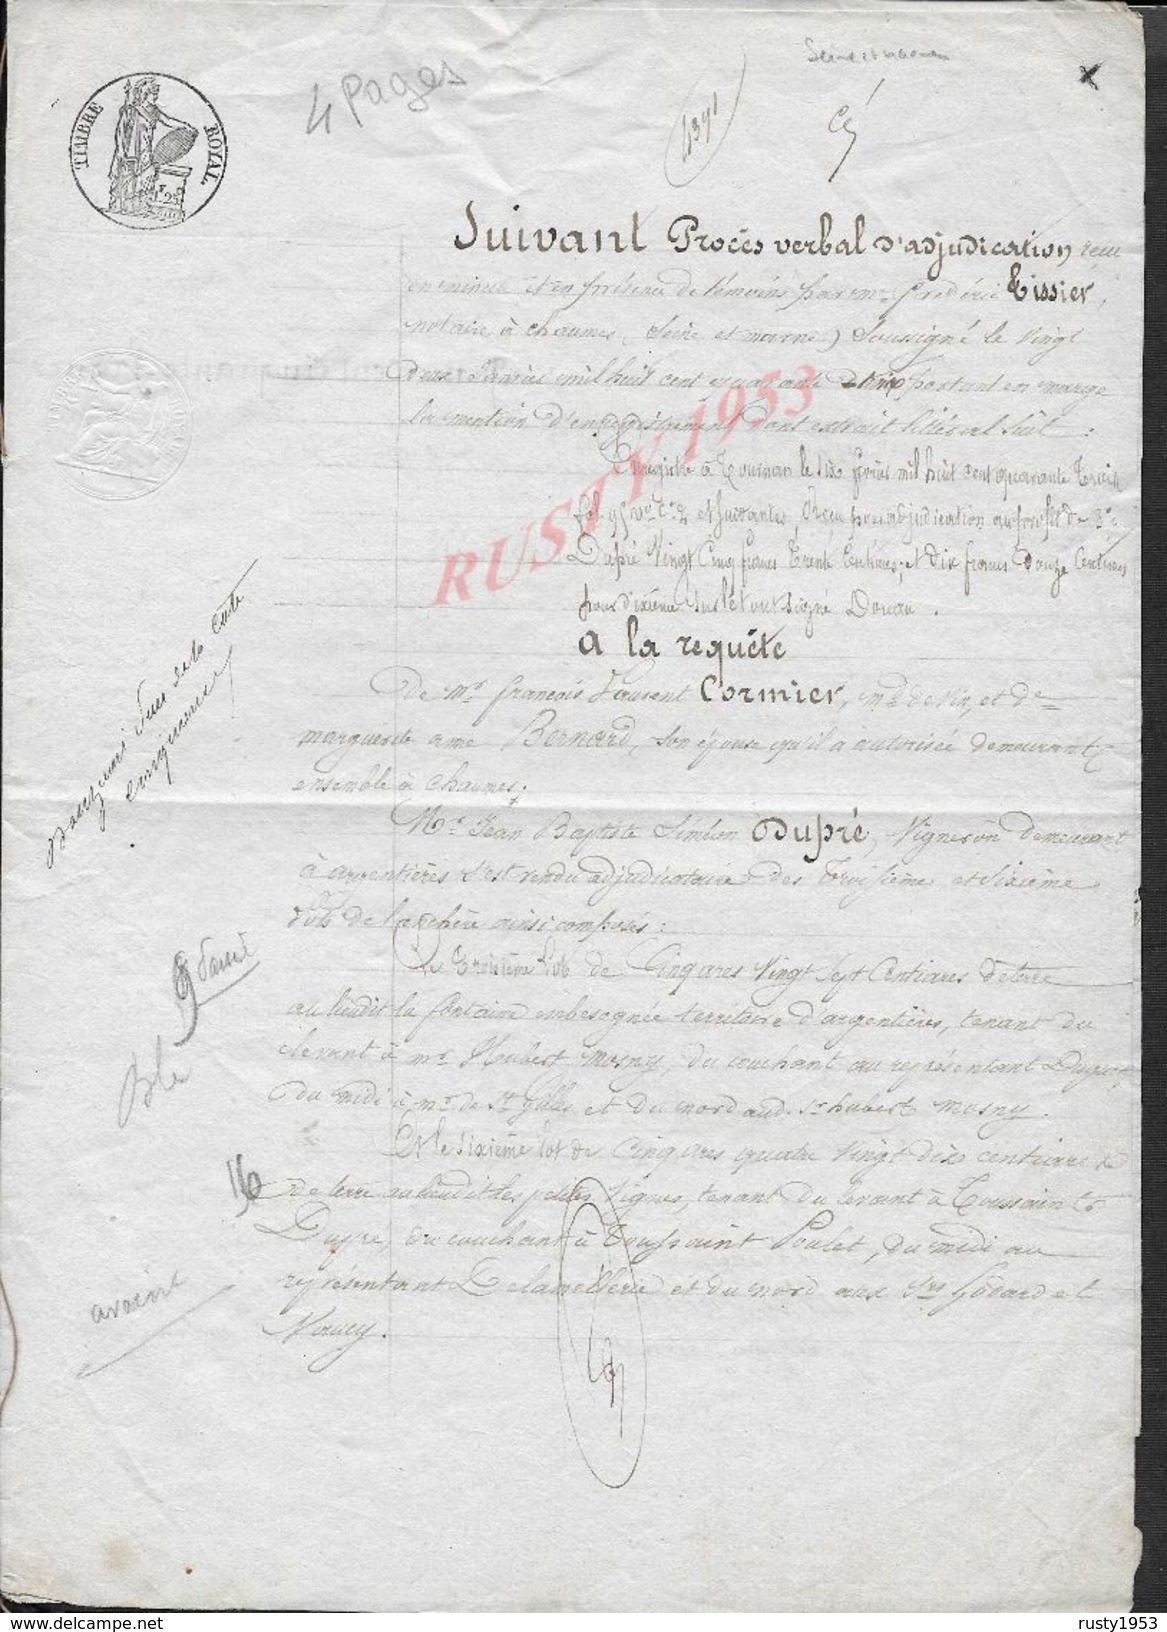 Seine et marne
4 Pages
4391
TIMBRE ROYAL
1F 25
Suivant Procès verbal d'adjudication reçu
en minute et en présence de témoins par Me frederic Tissier,
notaire à Chaumes (Seine et marne) Soussigné le vingt
deux Janvier mil huit cent quarante trois portant en marge
la mention d'enregistrement dont extrait littéral suit :
Enregistré à Tournan le six février mil huit cent quarante trois
fol 95 vo Ce 2 et suivantes, Reçu pour adjudication au profit de Sr
Dupré Vingt Cinq francs trente Centimes, et dix francs Douze Centimes
pour dixième sur le tout signé Douau.
A la requête
De Mr françois Laurent Cormier, md de vin, et De
marguerite aimé Bernard, son épouse qu'il a autorisée demeurant
ensemble à Chaumes;
Mr Jean Baptiste Siméon Dupré, Vigneron demeurant
à argentières s'est rendu adjudicataire des troisième et sixième
lots de l'enchère ainsi composés :
Le troisième lot de Cinq ares vingt sept Centiares de terre
au lieudit la fontaine embesognée territoire d'argentières, tenant du
levant à mr hubert mosny, du couchant au représentant Dupré,
du midi à mr de St Gilles et du nord aud. Sr hubert mosny.
Et le sixième lot de Cinq ares quatre vingt dix centiares
de terre au lieudit les petites Vignes, tenant du levant à Toussaint
Dupré, du couchant à Toussaint Poulet, du midi au
représentant Delamelleric et du nord aux Srs Godard et
Noury.
Ble
16
avoine
RUSTY 1953
delcampe.net
rusty1953